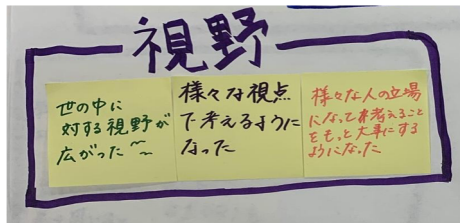 視野
世の中に
対する視野が
広がった〜〜
様々な視点
で考えるように
なった
様々な人の立場
になって考えること
をもっと大事にする
ようになった